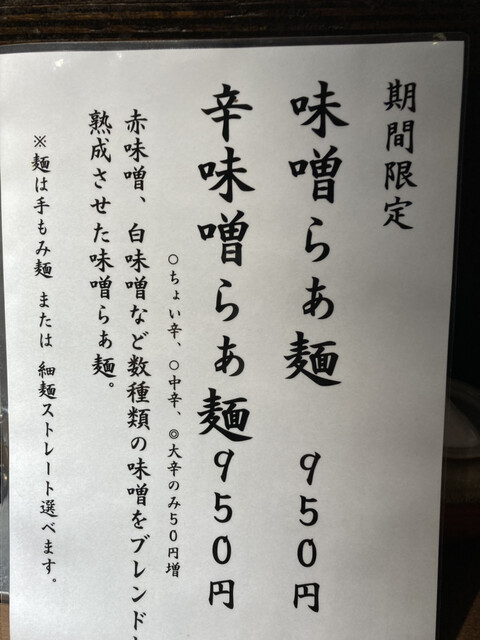 期間限定
味噌らぁ麺 950円
辛味噌らぁ麺950円
○ちょい辛、○中辛、◎大辛のみ50円増
赤味噌、白味噌など数種類の味噌をブレンド
熟成させた味噌らぁ麺。
※麺は手もみ麺 または 細麺ストレート選べます。